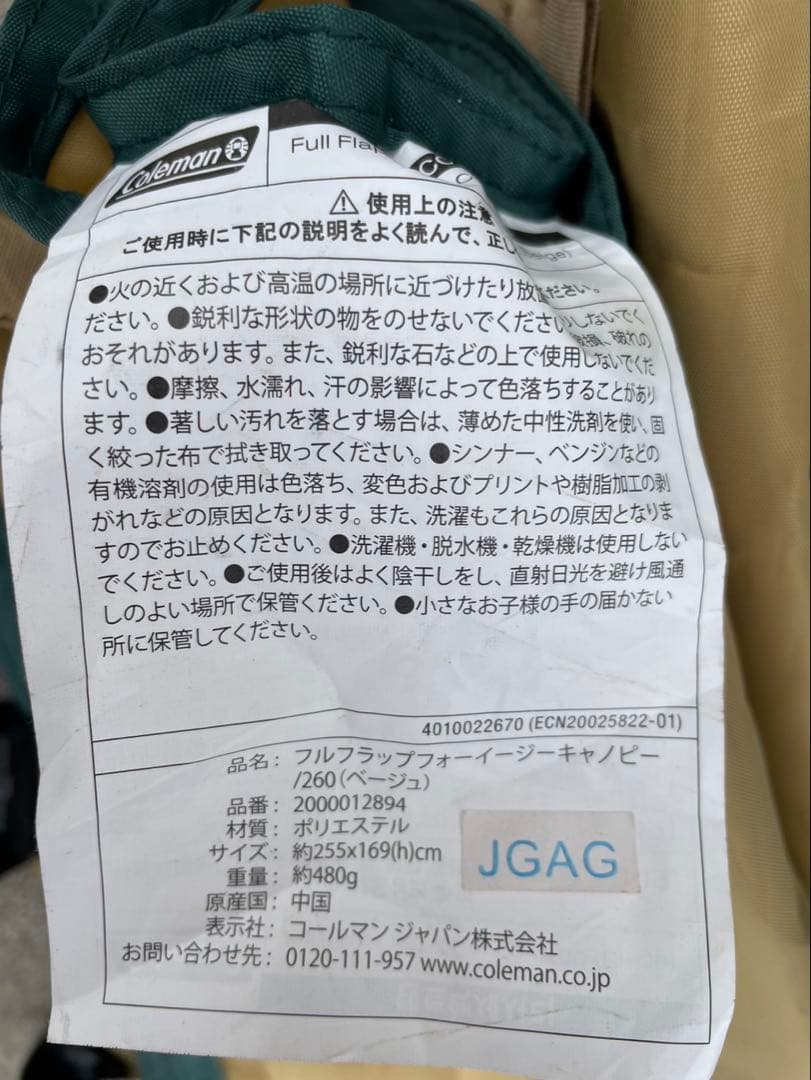 Coleman
Full Fla
使用上の注意
ご使用時に下記の説明をよく読んで、正し
●火の近くおよび高温の場所に近づけたり放置 ださい。
ださい。●鋭利な形状の物をのせないでください しないでく 破れの
おそれがあります。また、鋭利な石などの上で使用しないでくだ
さい。●摩擦、水濡れ、汗の影響によって色落ちすることがあり
ます。●著しい汚れを落とす場合は、薄めた中性洗剤を使い、固
く絞った布で拭き取ってください。●シンナー、ベンジンなどの
有機溶剤の使用は色落ち、変色およびプリントや樹脂加工の剥
がれなどの原因となります。また、洗濯もこれらの原因となりま
すのでお止めください。●洗濯機・脱水機・乾燥機は使用しない
でください。●ご使用後はよく陰干しをし、直射日光を避け風通
しのよい場所で保管ください。●小さなお子様の手の届かない
所に保管してください。
4010022670 (ECN20025822-01)
品名： フルフラップフォーイージーキャノピー
/260（ベージュ）
品番： 2000012894
材質： ポリエステル
サイズ： 約255x169(h)cm
重量： 約480g
原産国： 中国
表示社： コールマン ジャパン株式会社
お問い合わせ先： 0120-111-957 www.coleman.co.jp
JGAG